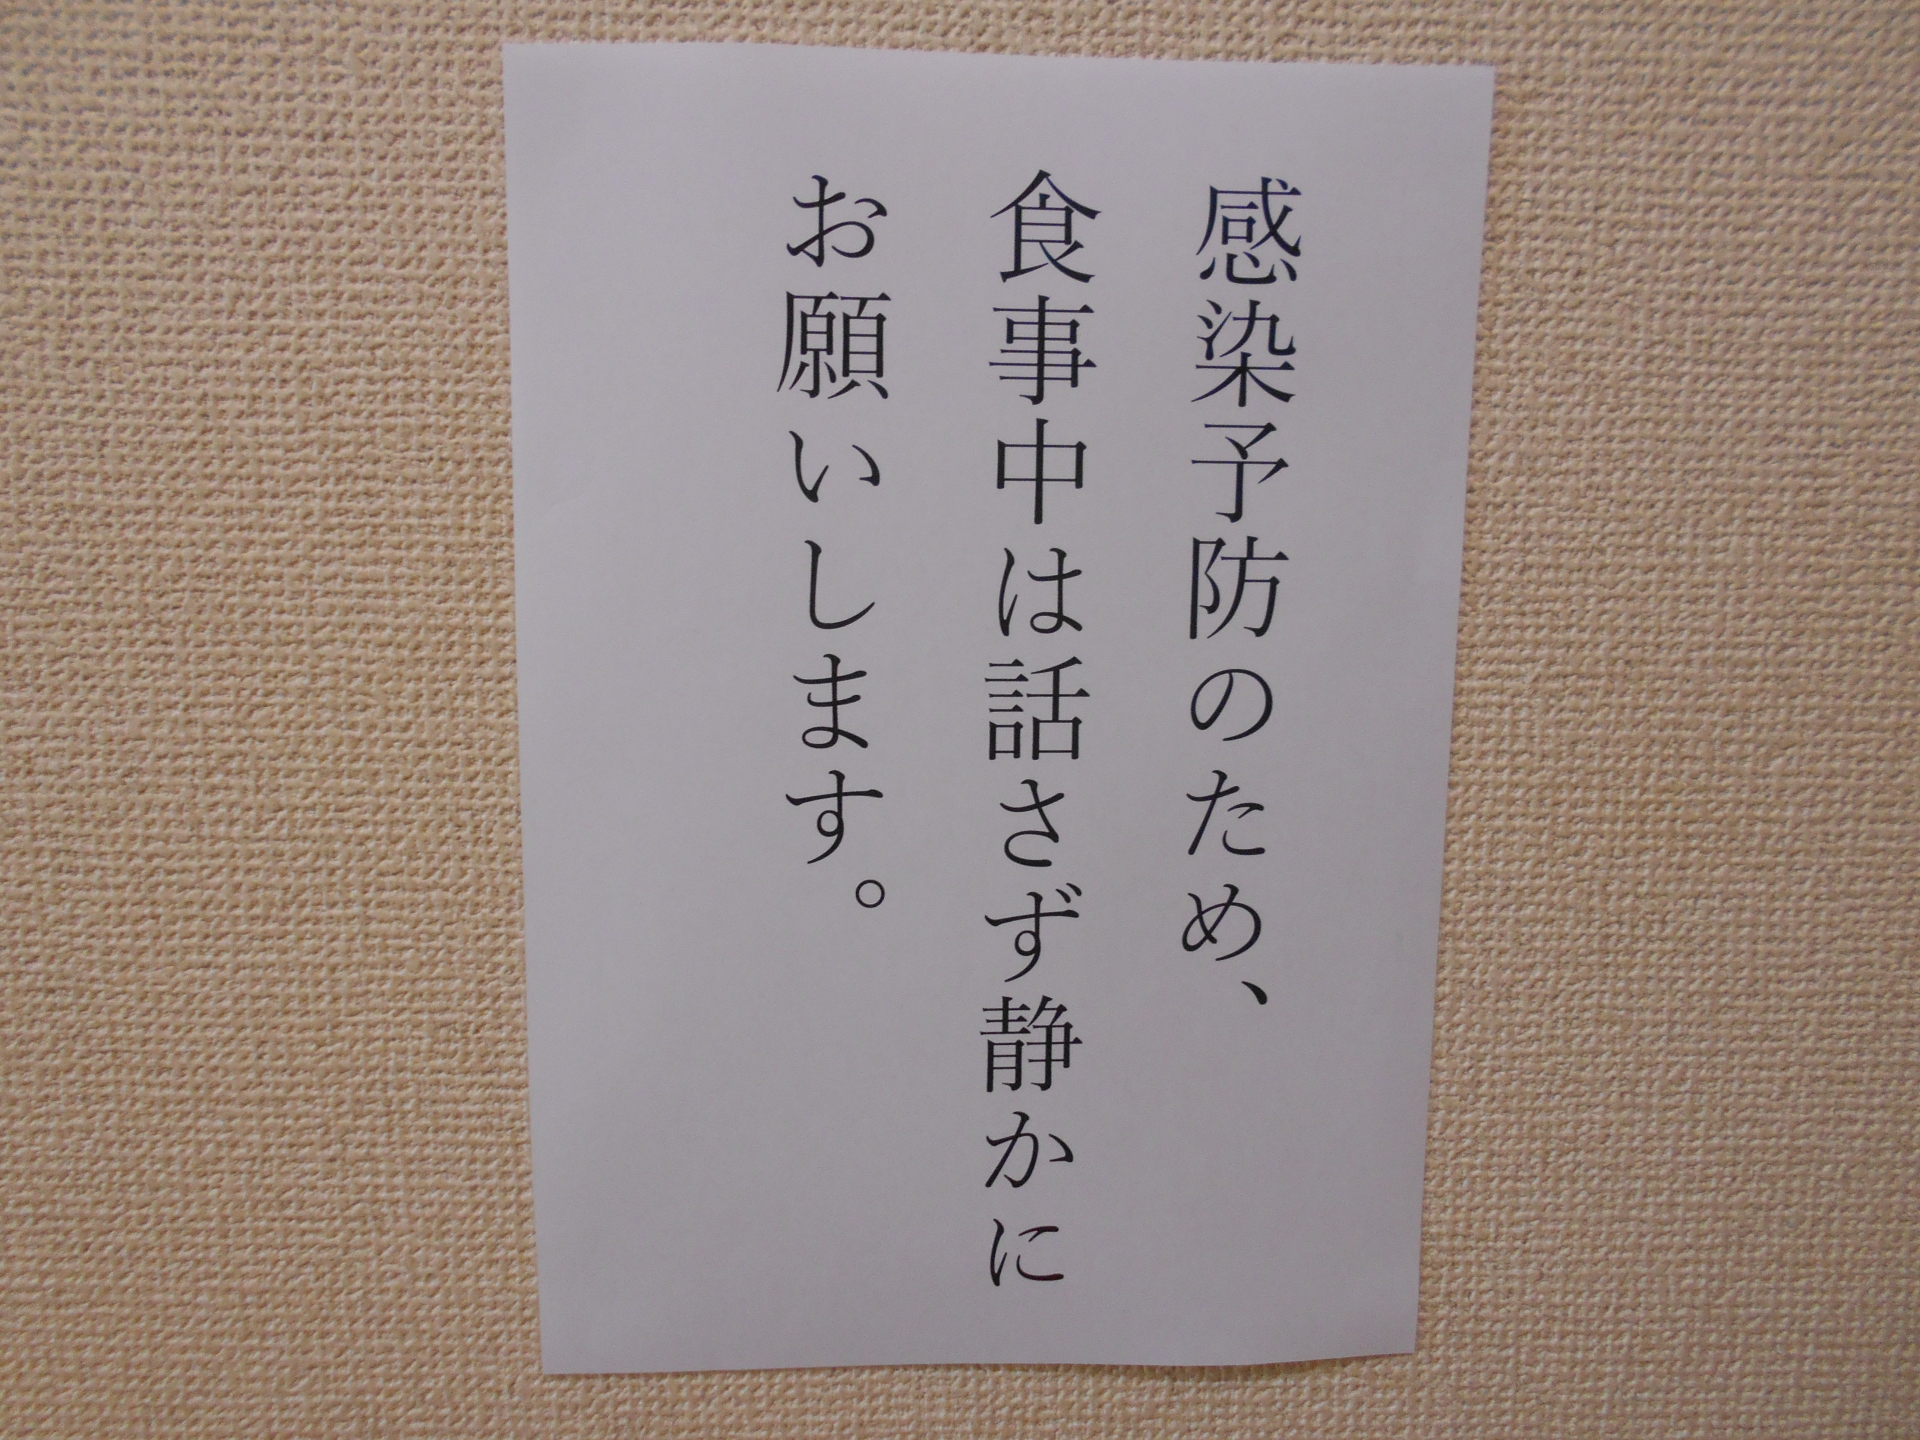 感染予防のため、
食事中は話さず静かに
お願いします。